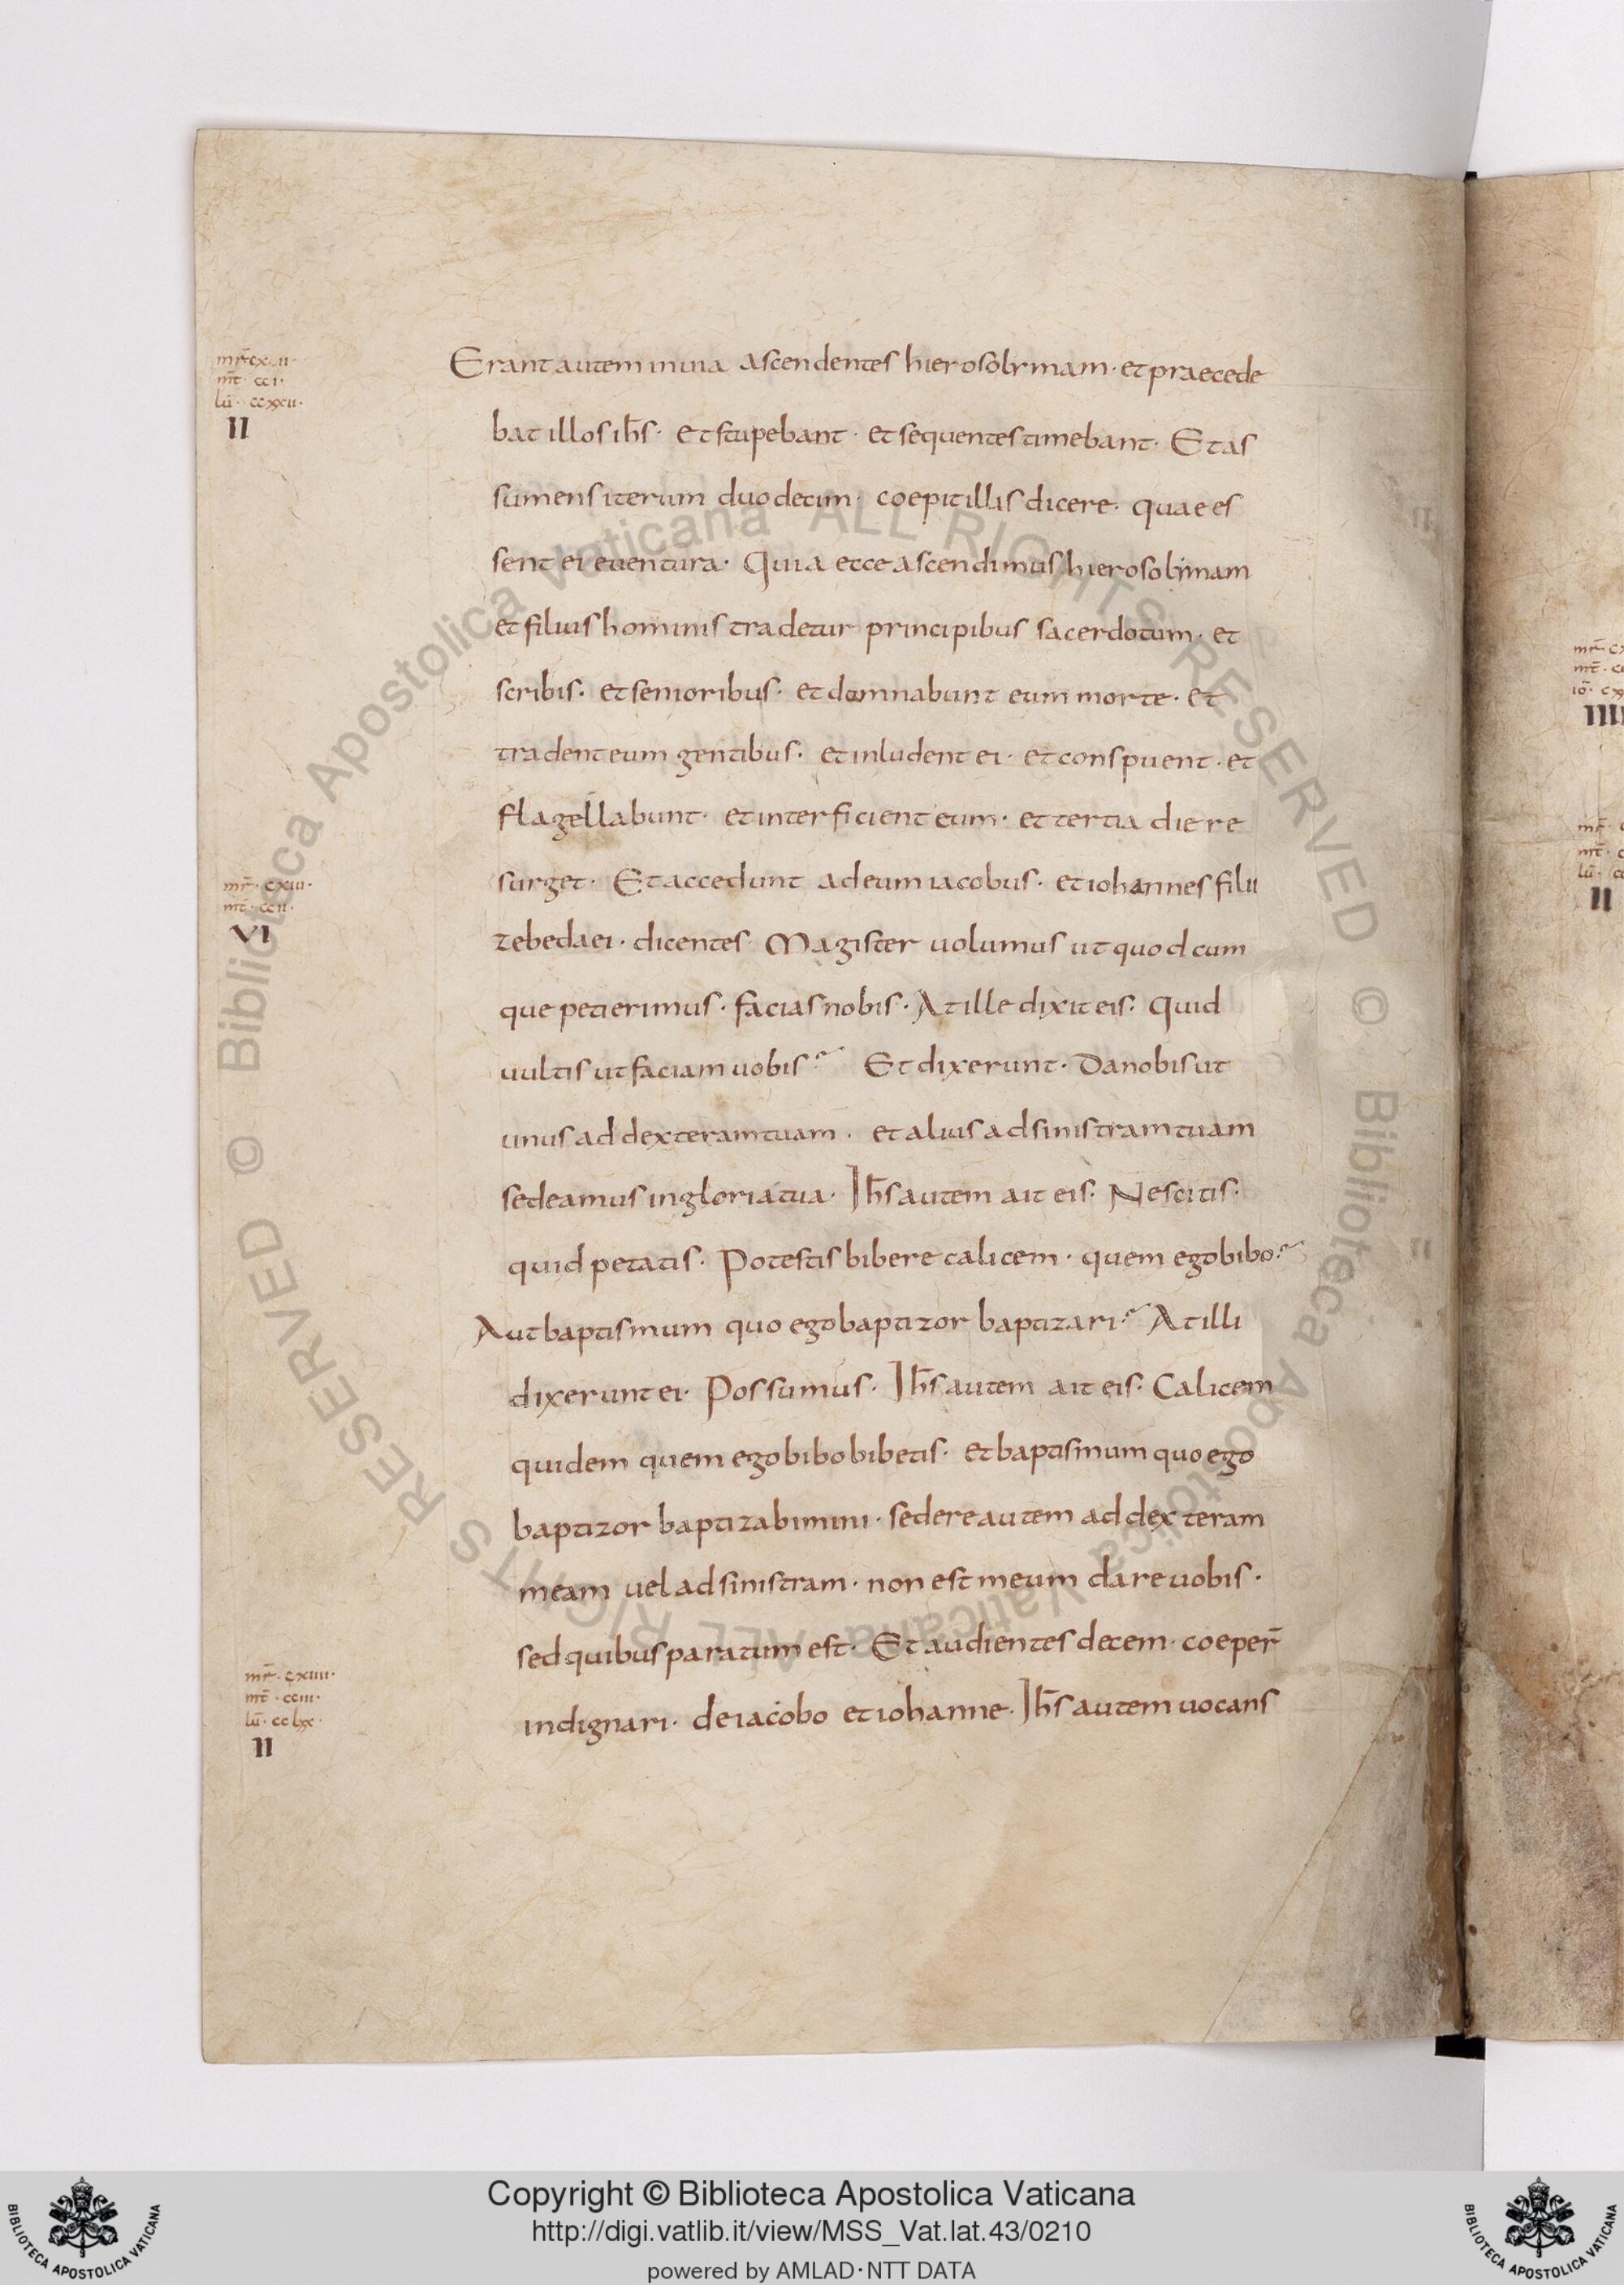 mr̄ cx
mt̄ · cci ·
lū · ccxxii ·
II
Erant autem in uia ascendentes hierosolymam · et praecede
bat illos ih̄s · et stupebant · et sequentes timebant · Et as
sumens iterum duodecim · coepit illis dicere · quae es
sent ei euentura · Quia ecce ascendimus hierosolimam
et filius hominis tradetur principibus sacerdotum · et
scribis · et senioribus · et damnabunt eum morte · et
tradent eum gentibus · et inludent ei · et conspuent · et
flagellabunt · et interficient eum · et tertia die re
mr̄ · cxiii ·
mt̄ · ccii ·
VI
surget · Et accedunt ad eum iacobus · et iohannes filii
zebedaei · dicentes · Magister uolumus ut quodcum
que petierimus · facias nobis · At ille dixit eis · Quid
uultis ut faciam uobis? Et dixerunt · Da nobis ut
unus ad dexteram tuam · et alius ad sinistram tuam
sedeamus in gloria tua · Ih̄s autem ait eis · Nescitis ·
quid petatis · Potestis bibere calicem · quem ego bibo?
Aut baptismum quo ego baptizor baptizari? At illi
dixerunt ei · Possumus · Ih̄s autem ait eis · Calicem
quidem quem ego bibo bibetis · et baptismum quo ego
baptizor baptizabimini · sedere autem ad dexteram
meam uel ad sinistram · non est meum dare uobis ·
sed quibus paratum est · Et audientes decem · coeper̄
mr̄ · cxiiii ·
mt̄ · cciii ·
lū · cclxx ·
II
indignari · de iacobo et iohanne · Ih̄s autem uocans
mr̄ c
mt̄ · c
iō · cx
IIII
mr̄ ·
mt̄ · c
lū · c
II
© Biblioteca Apostolica Vaticana ALL RIGHTS RESERVED
© Biblioteca Apostolica Vaticana ALL RIGHTS RESERVED
Copyright © Biblioteca Apostolica Vaticana
http://digi.vatlib.it/view/MSS_Vat.lat.43/0210
powered by AMLAD·NTT DATA
BIBLIOTECA APOSTOLICA VATICANA
BIBLIOTECA APOSTOLICA VATICANA